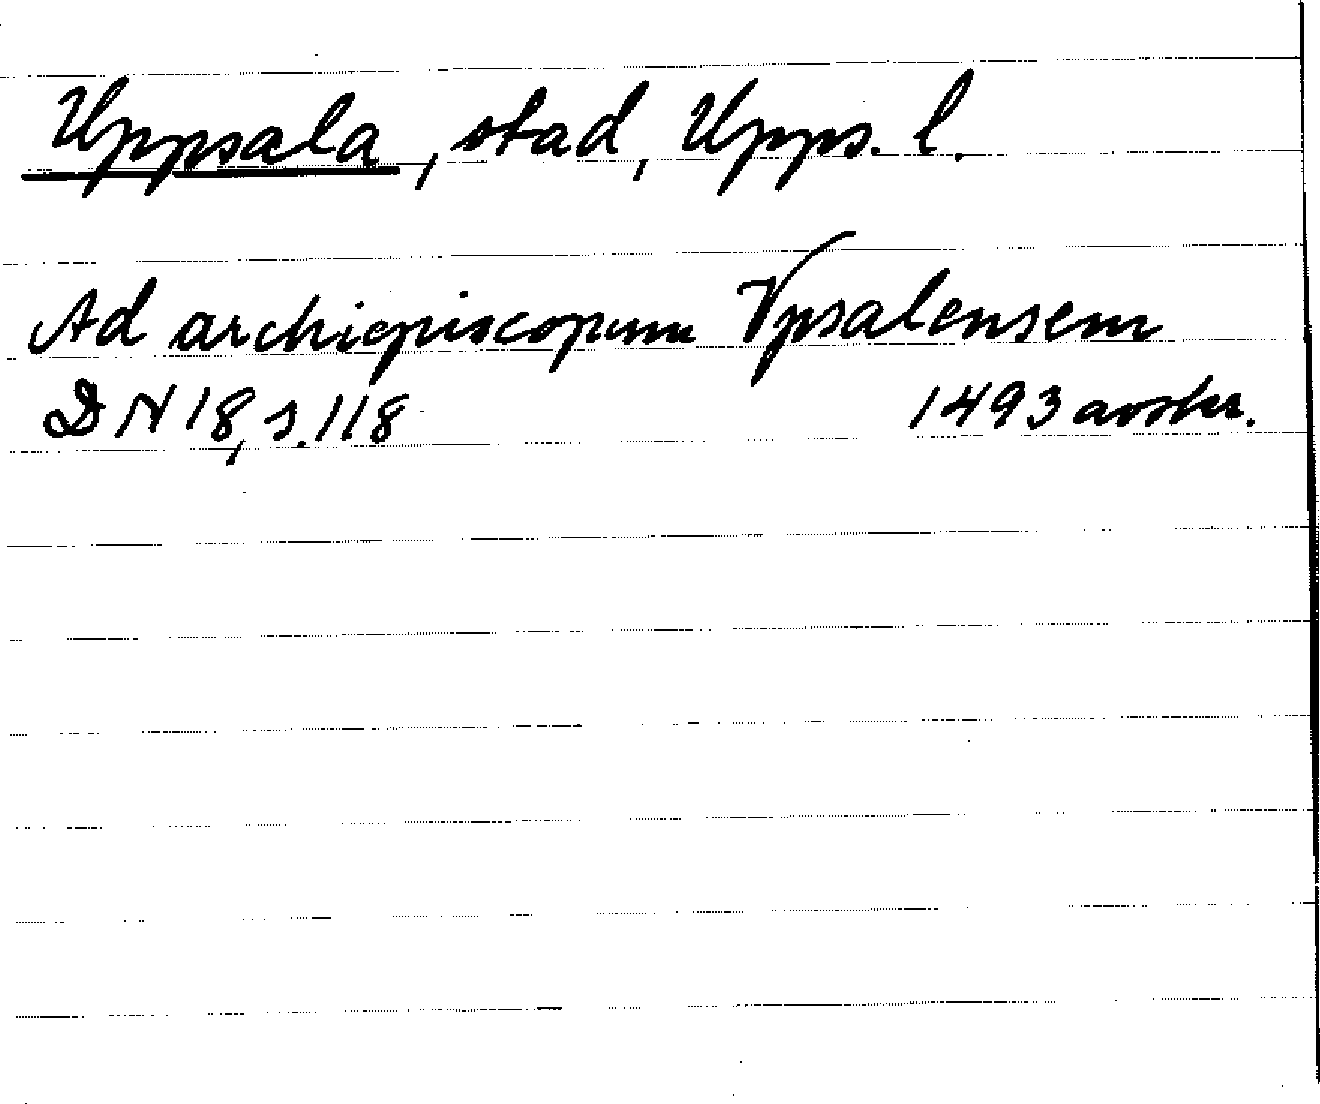 Uppsala, stad, Upps. l.
Ad archiepiscopum Vpsalensem
DN 18, s. 118 1493 avskr.